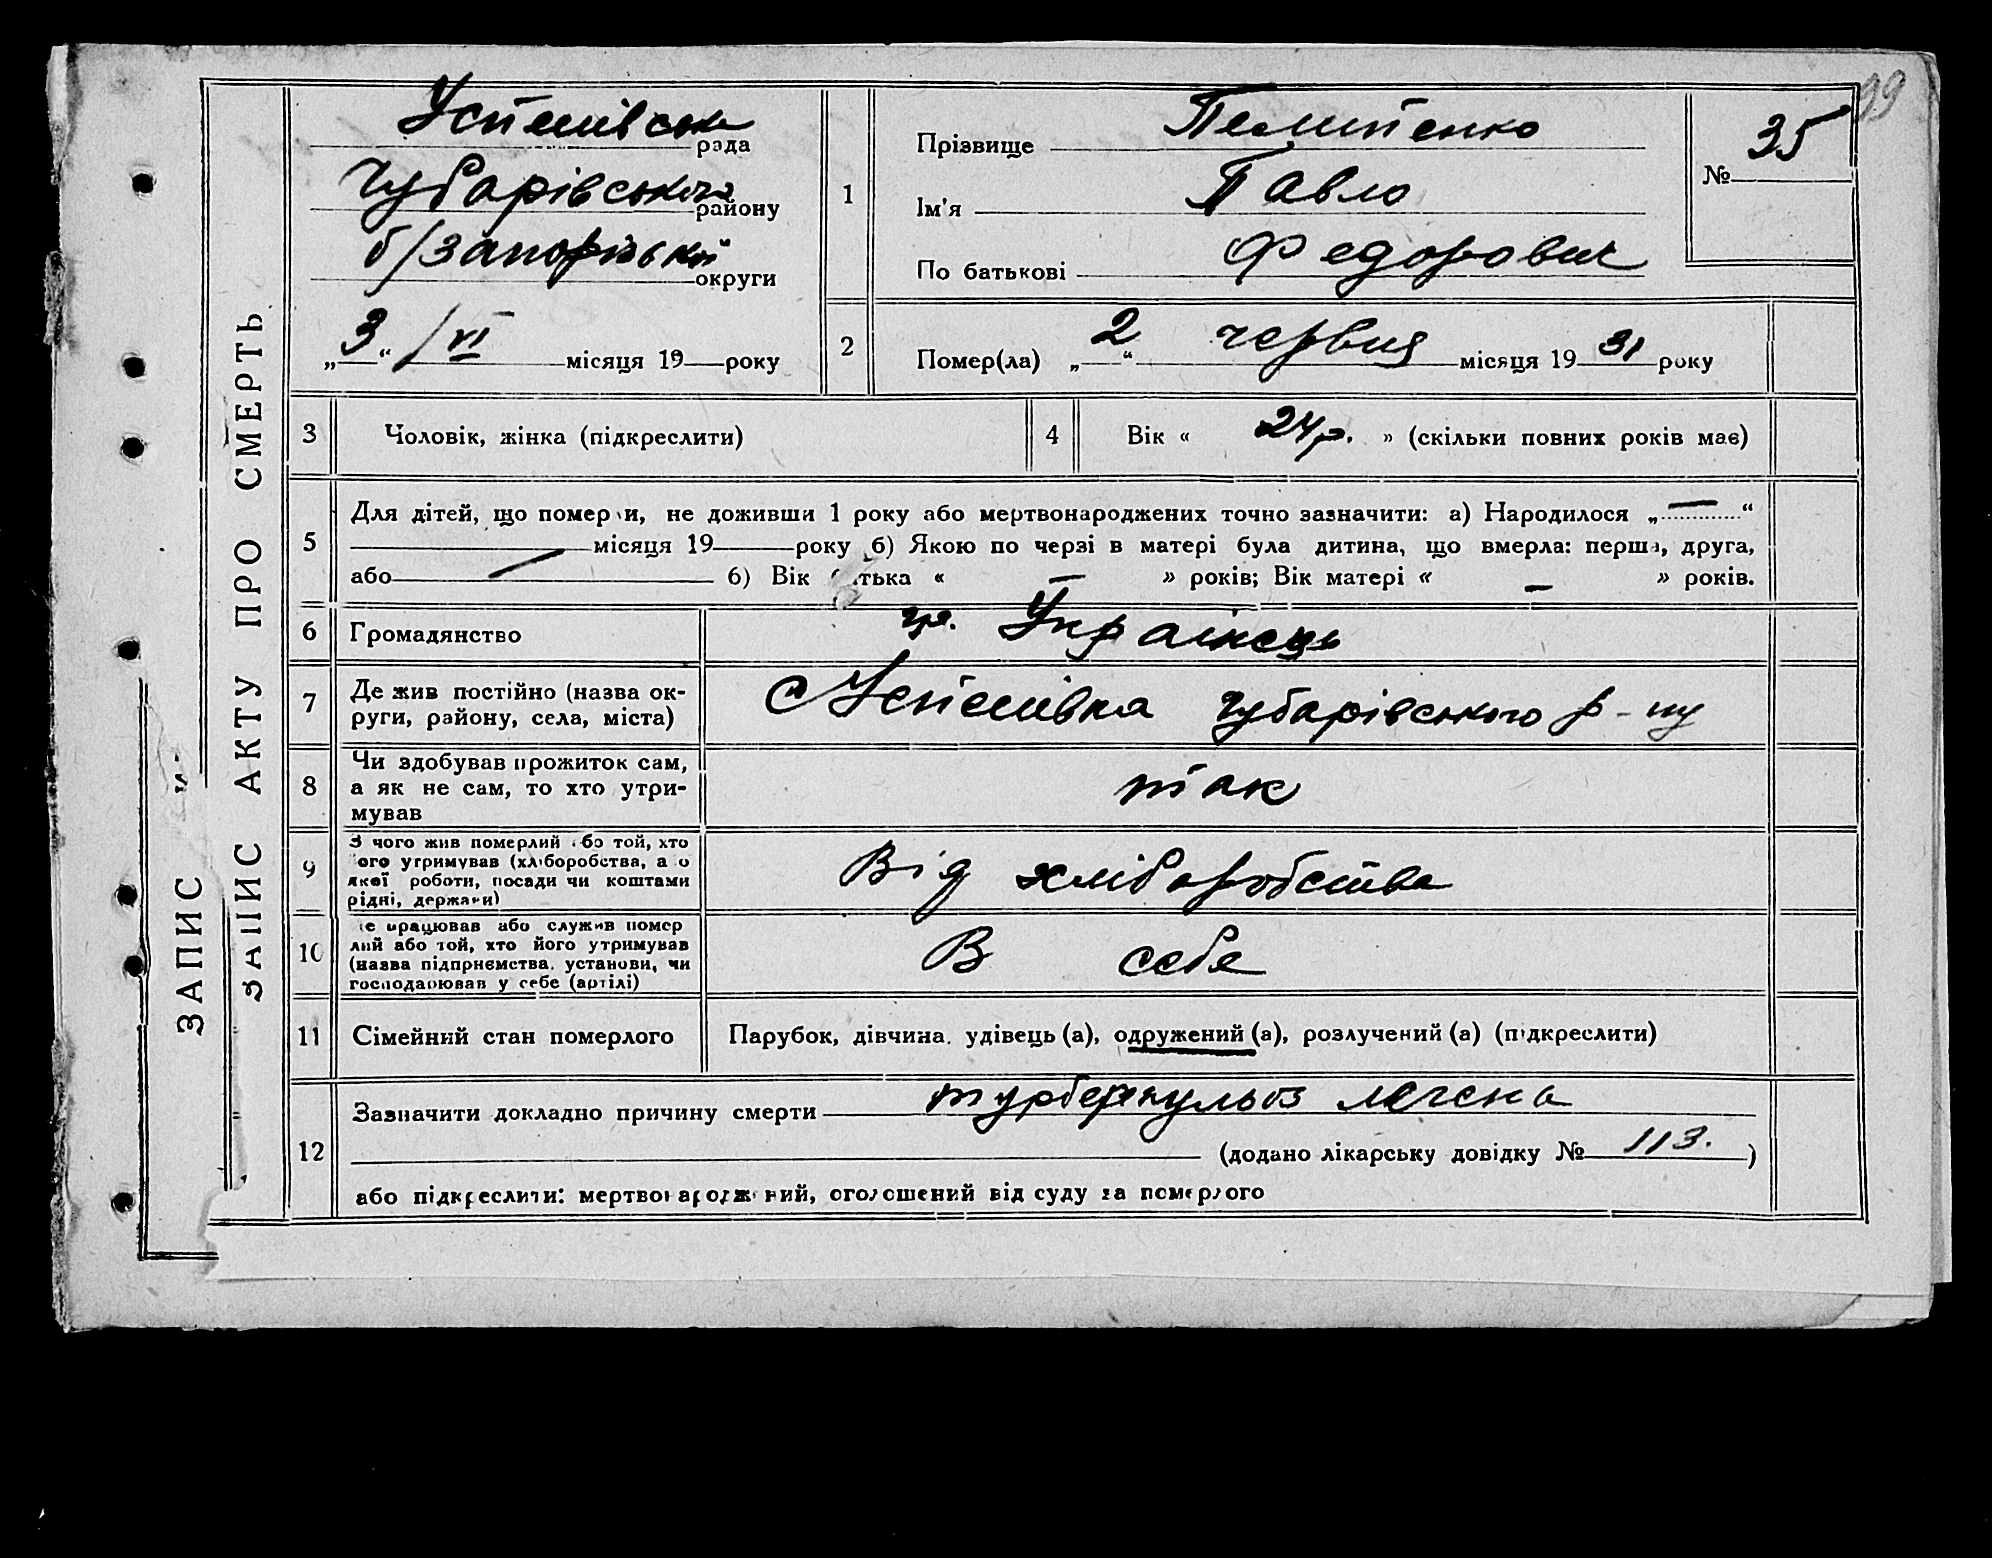 99
Успенівська
рада
Чубарівського
району
б/Запорізької
округи
„3“ /VI місяця 19 року
1
Прізвище Пелипенко
Ім'я Павло
По батькові Федорович
№ 35
2
Помер(ла) „2“ червня місяця 1931 року
3
Чоловік, жінка (підкреслити)
4
Вік « 24 р. » (скільки повних років має)
5
Для дітей, що померли, не доживши 1 року або мертвонароджених точно зазначити: а) Народилося „—“
місяця 19 року б) Якою по черзі в матері була дитина, що вмерла: перша, друга,
або — 6) Вік батька « — » років; Вік матері « — » років.
6
Громадянство
гр. Українець
7
Де жив постійно (назва ок-
руги, району, села, міста)
с Успенівка Чубарівського р-ну
8
Чи здобував прожиток сам,
а як не сам, то хто утри-
мував
так
9
З чого жив померлий або той, хто
його утримував (хліборобства, або
якої роботи, посади чи коштами
рідні, держави)
Від хліборобства
10
Де працював або служив помер
лий або той, хто його утримував
(назва підприємства, установи, чи
господарював у себе (артілі)
В себе
11
Сімейний стан померлого
Парубок, дівчина, удівець (а), одружений (а), розлучений (а) (підкреслити)
12
Зазначити докладно причину смерти турберкульоз легень
(додано лікарську довідку № 113.)
або підкреслити: мертвонароджений, оголошений від суду за померлого
ЗАПИС АКТУ ПРО СМЕРТЬ
ЗАПИС